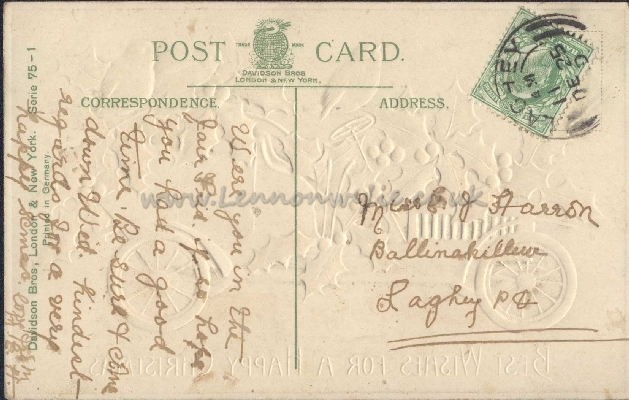 POST CARD.
TRADE MARK
DAVIDSON BROS
LONDON & NEW YORK.
CORRESPONDENCE.
ADDRESS.
LAGHEY
DE 25
11
Were you in the
fair
you had a good
time. Be sure &
down Wed. Kindest
regards for a very
happy Xmas.
Ballinakillew
Laghey P.O
Davidson Bros, London & New York. Serie 75-1
Printed in Germany
www.Lennonwylie.co.uk
BEST WISHES FOR A HAPPY CHRISTMAS